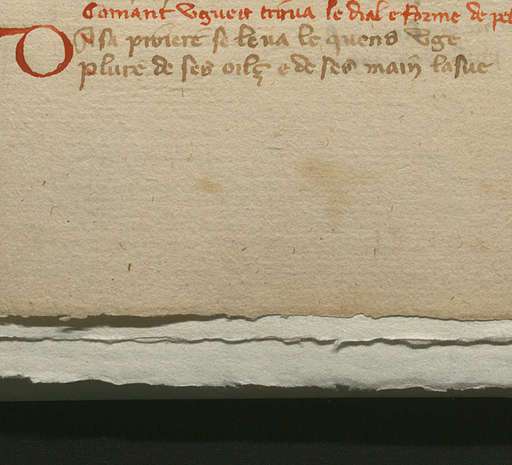 Comant Vgueit truva le dial e forme de pel
D A sa proiere se leva le quens Vge
plure de ses oilz e de ses main lasue